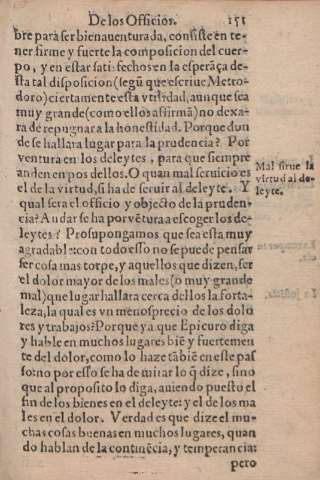 De los Officios. 151
bre para ser bienauenturada, consiste en te-
ner firme y fuerte la composicion del cuer-
po, y en estar satisfechos en la esperāça de-
sta tal disposicion (segū que escriue Metro-
doro) ciertamente esta vtilidad, aunque sea
muy grande (como ellos afirmā) no dexa-
ra de repugnar a la honestidad. Porque don
de se hallara lugar para la prudencia? Por
ventura en los deleytes, para que siempre
anden en pos dellos. O quan mal seruicio es
el de la virtud, si ha de seruir al deleyte. Y
qual sera el officio y objecto de la pruden-
cia? Andar se ha por vētura a escoger los de-
leytes? Prosupongamos que sea esta muy
agradable: con todo esso no se puede pensar
ser cosa mas torpe, y aquellos que dizen, ser
el dolor mayor de los males (o muy grande
mal) que lugar hallara cerca dellos la forta-
leza, la qual es vn menosprecio de los dolo
res y trabajos? Porque ya que Epicuro diga
y hable en muchos lugares biē y fuertemen
te del dolor, como lo haze tābiē en este pas
so: no por esso se ha de mirar lo q̄ dize, sino
que al proposito lo diga, auiendo puesto el
fin de los bienes en el deleyte: y el de los ma
les en el dolor. Verdad es que dize el mu-
chas cosas buenas en muchos lugares, quan
do hablan de la continēcia, y temperancia:
pero
Mal sirue la
virtud al de-
leyte.